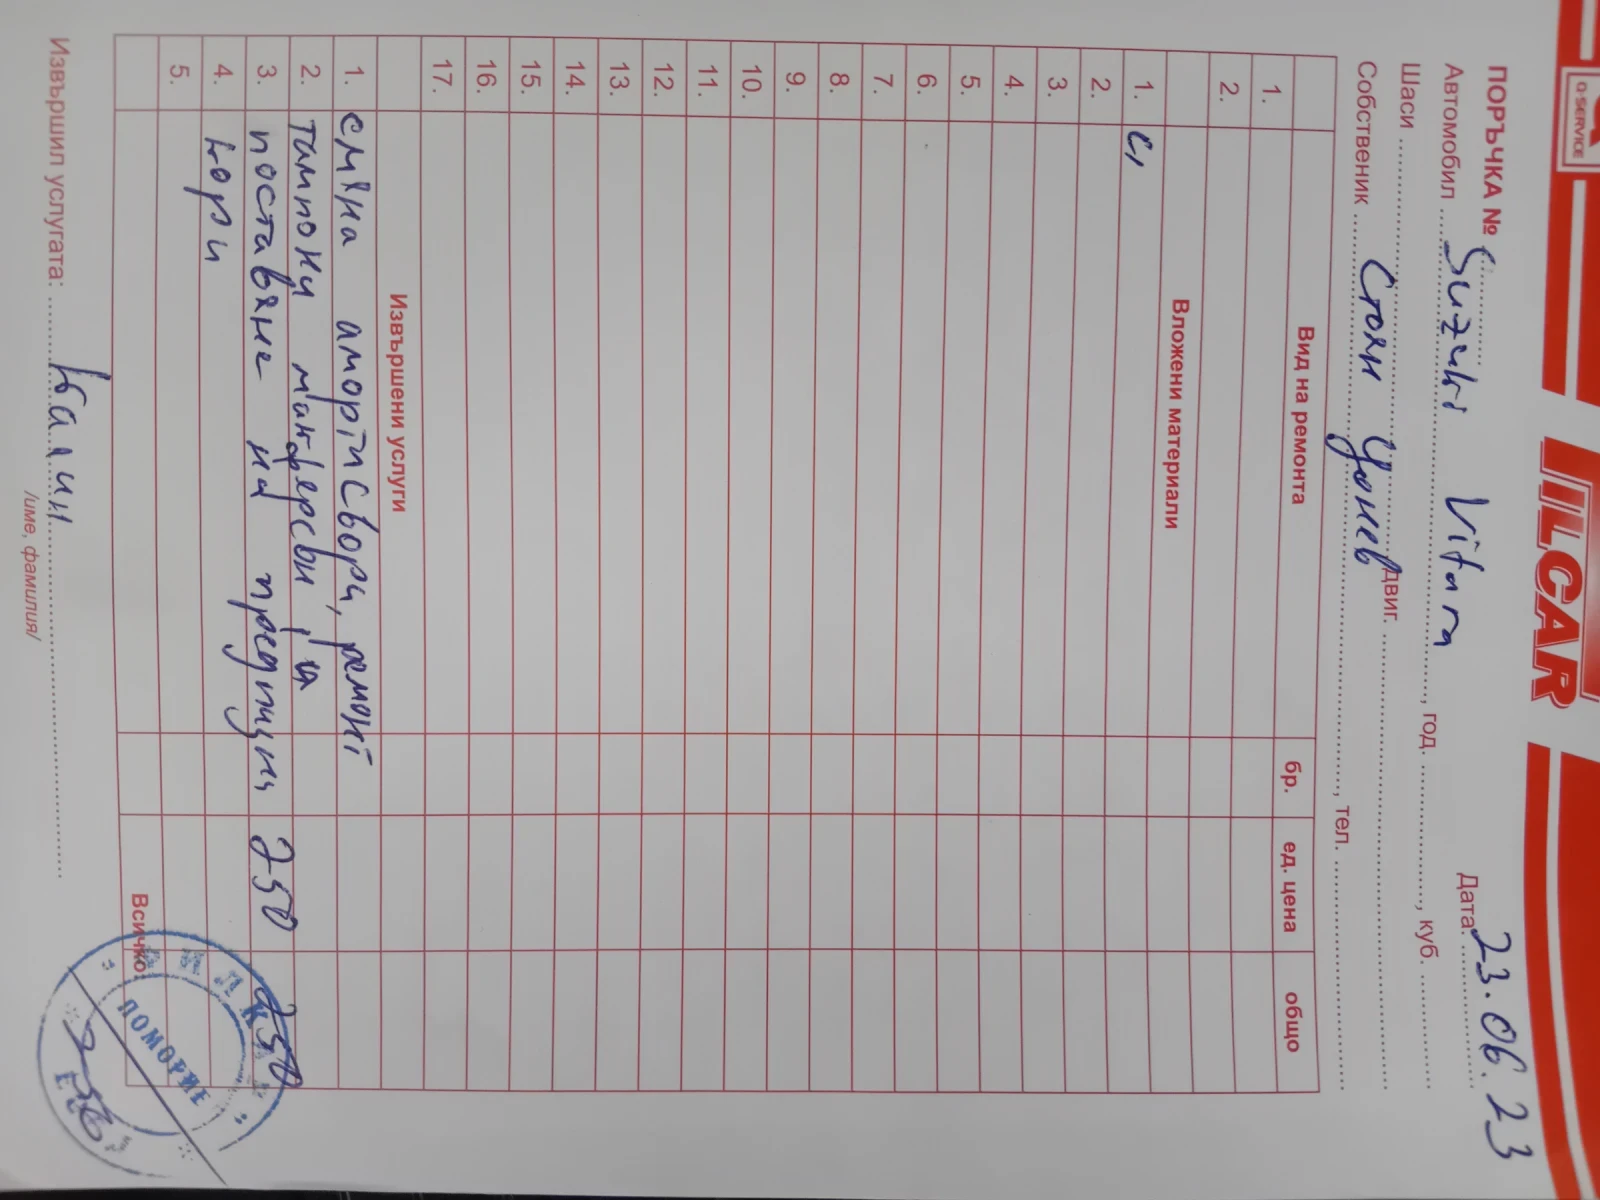 Q-SERVICE
ПОРЪЧКА №
Дата: 23.06.23
Автомобил Suzuki Vitara, год., куб.
Шаси двиг.
Собственик Стоян Цонев, тел.
Вид на ремонта бр. ед. цена общо
1.
2.
Вложени материали
1.
2.
3.
4.
5.
6.
7.
8.
9.
10.
11.
12.
13.
14.
15.
16.
17.
Извършени услуги
1. смяна амортисьори, ремонт
2. тампони макферсън, и
3. поставяне на предпазни 250 250
4. кори
5.
Всичко:
ПОМОРИЕ
Извършил услугата: Калин
/име, фамилия/